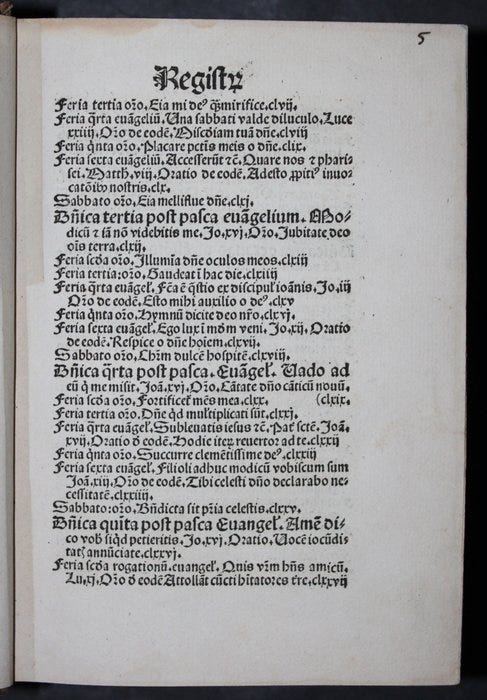 5
Registꝝ
Feria tertia oꝛo. Eia mi deꝰ q̈ꝫ mirifice.clvij.
Feria q̈rta euãgeliũ. Una sabbati valde diluculo. Luce
xxiiij. Oꝛo de eodẽ. Miscdiam tuã dñe.clviij
Feria q̇nta oꝛo. Placare pctis meis o dñe.clix.
Feria sexta euãgeliũ. Accesserũt ⁊č. Quare nos ⁊ phari⸗
sei. Math. viij. Oratio de eodẽ. Adesto ꝓpitiꝰ inuo⸗
catõibꝰ nostris.clx.
Sabbato oꝛo. Eia melliflue dñe.clxj.
Dñica tertia post pasca euãgelium. Mo⸗
dicũ ⁊ iã nõ videbitis me. Jo.xvj. Oꝛo. Jubilate deo
oĩs terra.clxij.
Feria scd̃a oꝛo. Illumĩa dñe oculos meos.clxiij
Feria tertia: oꝛo. Gaudeat ĩ hac die.clxiiij
Feria q̈rta euãgeł. Fc̃a ẽ q̃stio ex discipuł ioãnis. Jo.iij
Oꝛo de eodẽ. Esto mihi auxilio o deꝰ.clxv
Feria q̇nta oꝛo. Hymnũ dicite deo nr̃o.clxvj
Feria sexta euãgeł. Ego lux ĩ mõm veni. Jo.xij. Oratio
de eodẽ. Respice o dñe hoĩem.clxvij.
Sabbato oꝛo. Chr̃m dulcẽ hospitẽ.clxviij.
Dñica q̈rta post pasca. Euãgeł. Vado ad
eũ q̇ me misit. Joã.xvj. Oꝛo. Cãtate dño cãticũ nouũ.
Feria scd̃a oꝛo. Fortificet mẽs mea.clxx. (clxix.
Feria tertia oꝛo. Dñe q̇d multiplicati sũt.clxxj.
Feria q̈rta euãgeł. Subleuatis iesus ⁊č. Pat̃ sctẽ. Joã.
xvij. Oratio ď eodẽ. Hodie iteꝝ reuertor ad te.clxxij
Feria q̇nta oꝛo. Succurre clemẽtissime deꝰ.clxxiij
Feria sexta euãgeł. Filioli adhuc modicũ vobiscum sum
Joã.xiij. Oꝛo de eodẽ. Tibi celesti dño declarabo ne⸗
cessitatẽ.clxxiiij.
Sabbato: oꝛo. Bñdicta sit pr̃ia celestis.clxxv.
Dñica quĩta post pasca Euangeł. Amẽ di⸗
co vob̃ siq̇d petieritis. Jo.xvj. Oratio. Uocẽ iocũdi⸗
tatꝭ annũciate.clxxvj.
Feria scd̃a rogationũ. euangeł. Quis vr̃m hñs amicũ.
Lu.xj. Oꝛo ď eodẽ Attollãt cũcti hĩtatores tr̃e.clxxvij